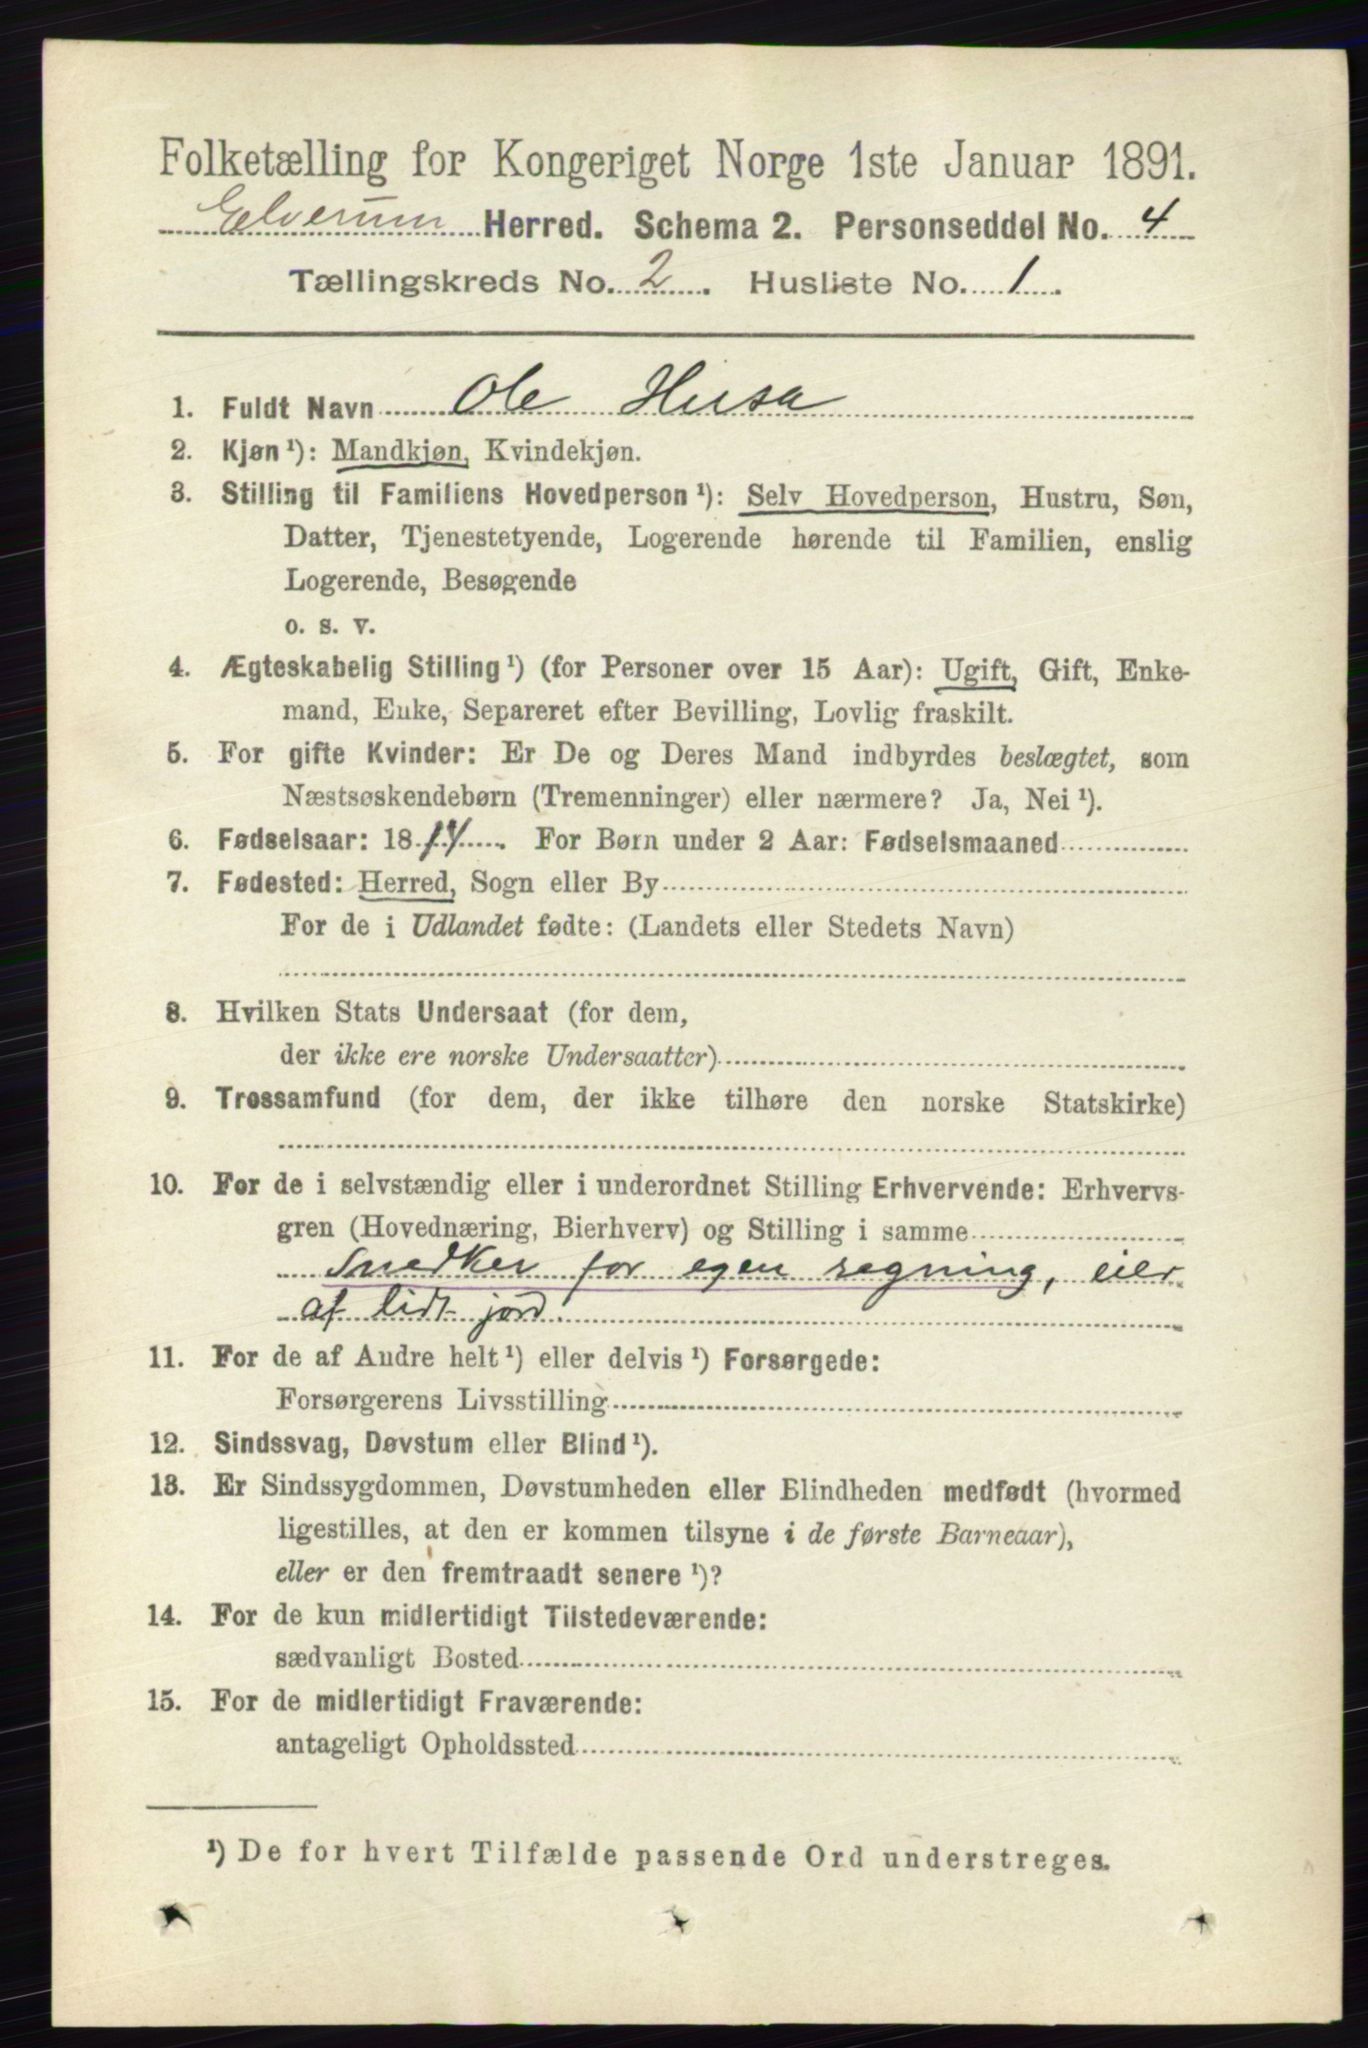 Folketælling for Kongeriget Norge 1ste Januar 1891.
Elverum Herred. Schema 2. Personseddel No. 4
Tællingskreds No. 2. Husliste No. 1.
1. Fuldt Navn Ole Husa
2. Kjøn ¹): Mandkjøn, Kvindekjøn.
3. Stilling til Familiens Hovedperson ¹): Selv Hovedperson, Hustru, Søn,
Datter, Tjenestetyende, Logerende hørende til Familien, enslig
Logerende, Besøgende
o. s. v.
4. Ægteskabelig Stilling ¹) (for Personer over 15 Aar): Ugift, Gift, Enke-
mand, Enke, Separeret efter Bevilling, Lovlig fraskilt.
5. For gifte Kvinder: Er De og Deres Mand indbyrdes beslægtet, som
Næstsøskendebørn (Tremenninger) eller nærmere? Ja, Nei ¹).
6. Fødselsaar: 1814. For Børn under 2 Aar: Fødselsmaaned
7. Fødested: Herred, Sogn eller By
For de i Udlandet fødte: (Landets eller Stedets Navn)
8. Hvilken Stats Undersaat (for dem,
der ikke ere norske Undersaatter)
9. Trossamfund (for dem, der ikke tilhøre den norske Statskirke)
10. For de i selvstændig eller i underordnet Stilling Erhvervende: Erhvervs-
gren (Hovednæring, Bierhverv) og Stilling i samme
Snedker for egen regning, eier
af lidt jord.
11. For de af Andre helt ¹) eller delvis ¹) Forsørgede:
Forsørgerens Livsstilling
12. Sindssvag, Døvstum eller Blind ¹).
13. Er Sindssygdommen, Døvstumheden eller Blindheden medfødt (hvormed
ligestilles, at den er kommen tilsyne i de første Barneaar),
eller er den fremtraadt senere ¹)?
14. For de kun midlertidigt Tilstedeværende:
sædvanligt Bosted
15. For de midlertidigt Fraværende:
antageligt Opholdssted
¹) De for hvert Tilfælde passende Ord understreges.